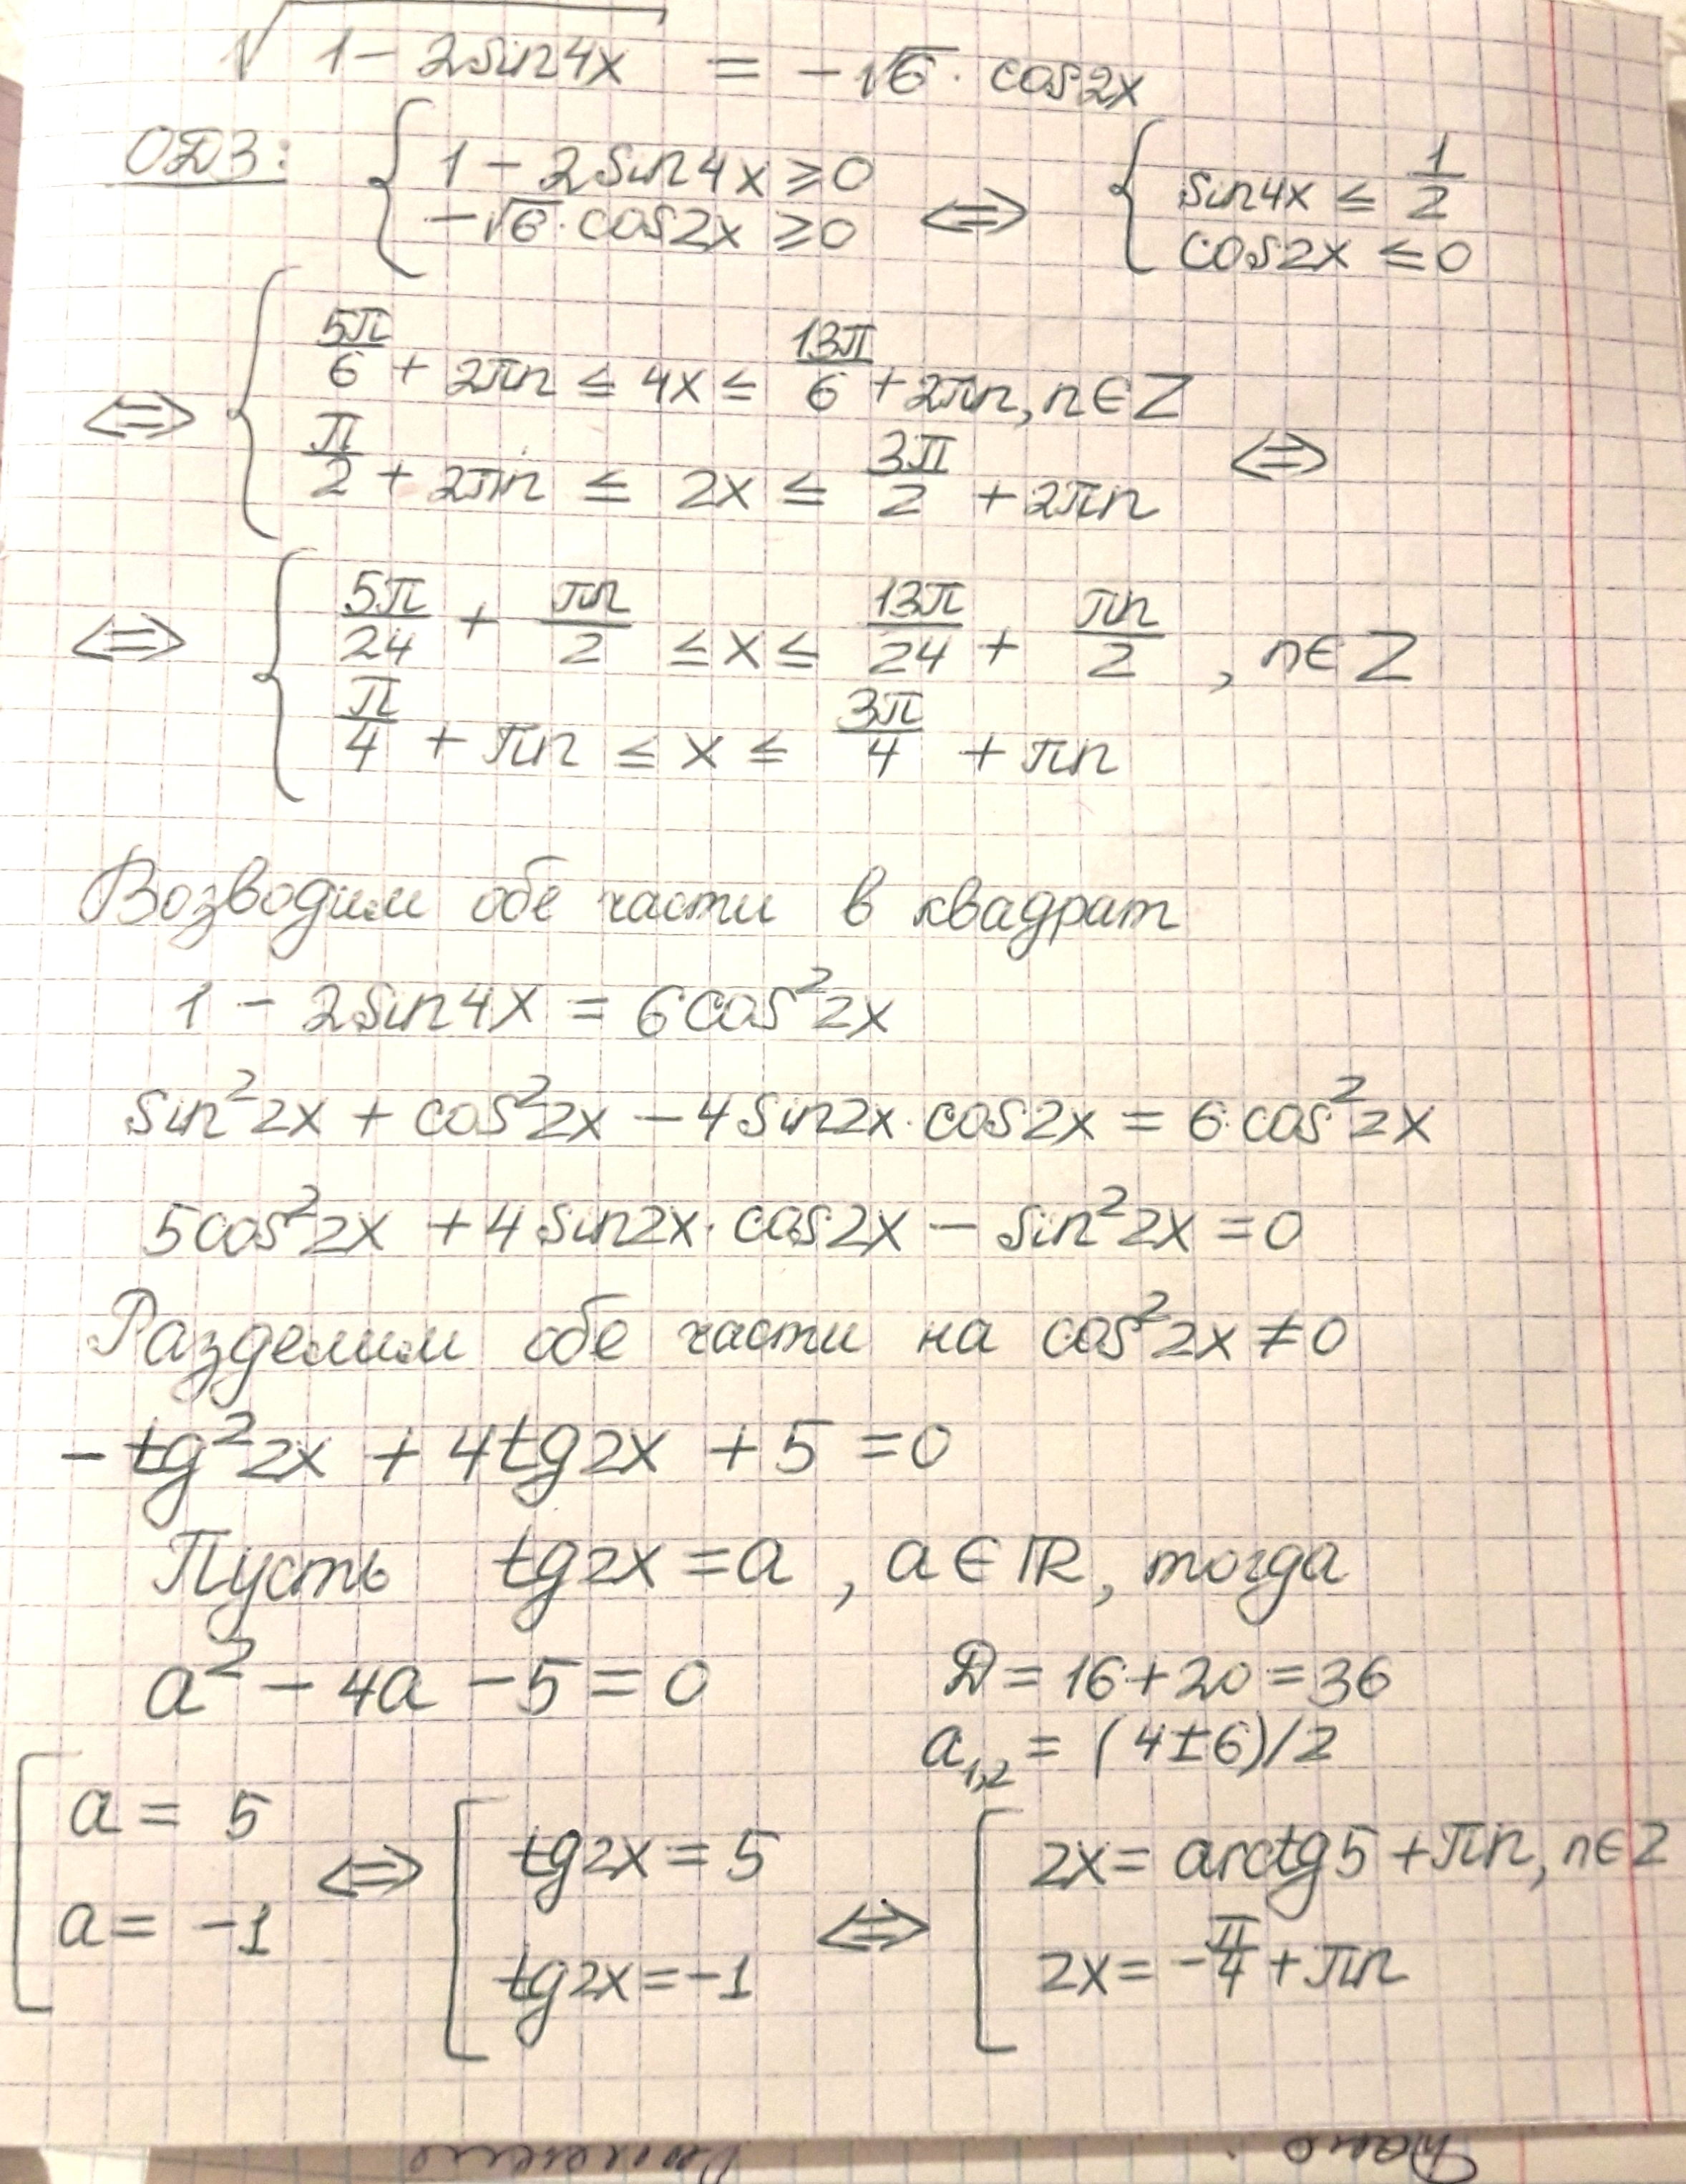 √(1 - 2sin4x) = -√6 · cos2x
ОДЗ: { 1 - 2sin4x ≥ 0 ; -√6 · cos2x ≥ 0 ⇔ { sin4x ≤ 1/2 ; cos2x ≤ 0
⇔ { 5π/6 + 2πn ≤ 4x ≤ 13π/6 + 2πn, n∈Z ; π/2 + 2πn ≤ 2x ≤ 3π/2 + 2πn ⇔
⇔ { 5π/24 + πn/2 ≤ x ≤ 13π/24 + πn/2, n∈Z ; π/4 + πn ≤ x ≤ 3π/4 + πn
Возводим обе части в квадрат
1 - 2sin4x = 6cos²2x
sin²2x + cos²2x - 4sin2x·cos2x = 6·cos²2x
5cos²2x + 4sin2x·cos2x - sin²2x = 0
Разделим обе части на cos²2x ≠ 0
-tg²2x + 4tg2x + 5 = 0
Пусть tg2x = a, a∈ℝ, тогда
a² - 4a - 5 = 0 Д = 16 + 20 = 36
a₁,₂ = (4±6)/2
[ a = 5 ; a = -1 ⇔ [ tg2x = 5 ; tg2x = -1 ⇔ [ 2x = arctg5 + πn, n∈Z ; 2x = -π/4 + πn